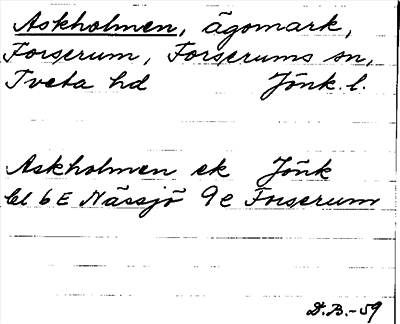 Askholmen, ägomark,
Forserum, Forserums sn,
Tveta hd Jönk. l.
Askholmen ek Jönk
bl 6E Nässjö 9e Forserum
D.B.-59